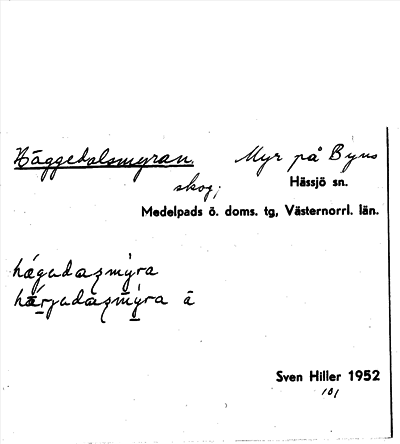 Häggedalsmyran. Myr på Byns
skog;
Hässjö sn.
Medelpads ö. doms. tg, Västernorrl. län.
hágadazmỳra
hǽrjadazmỳra ā
Sven Hiller 1952
101